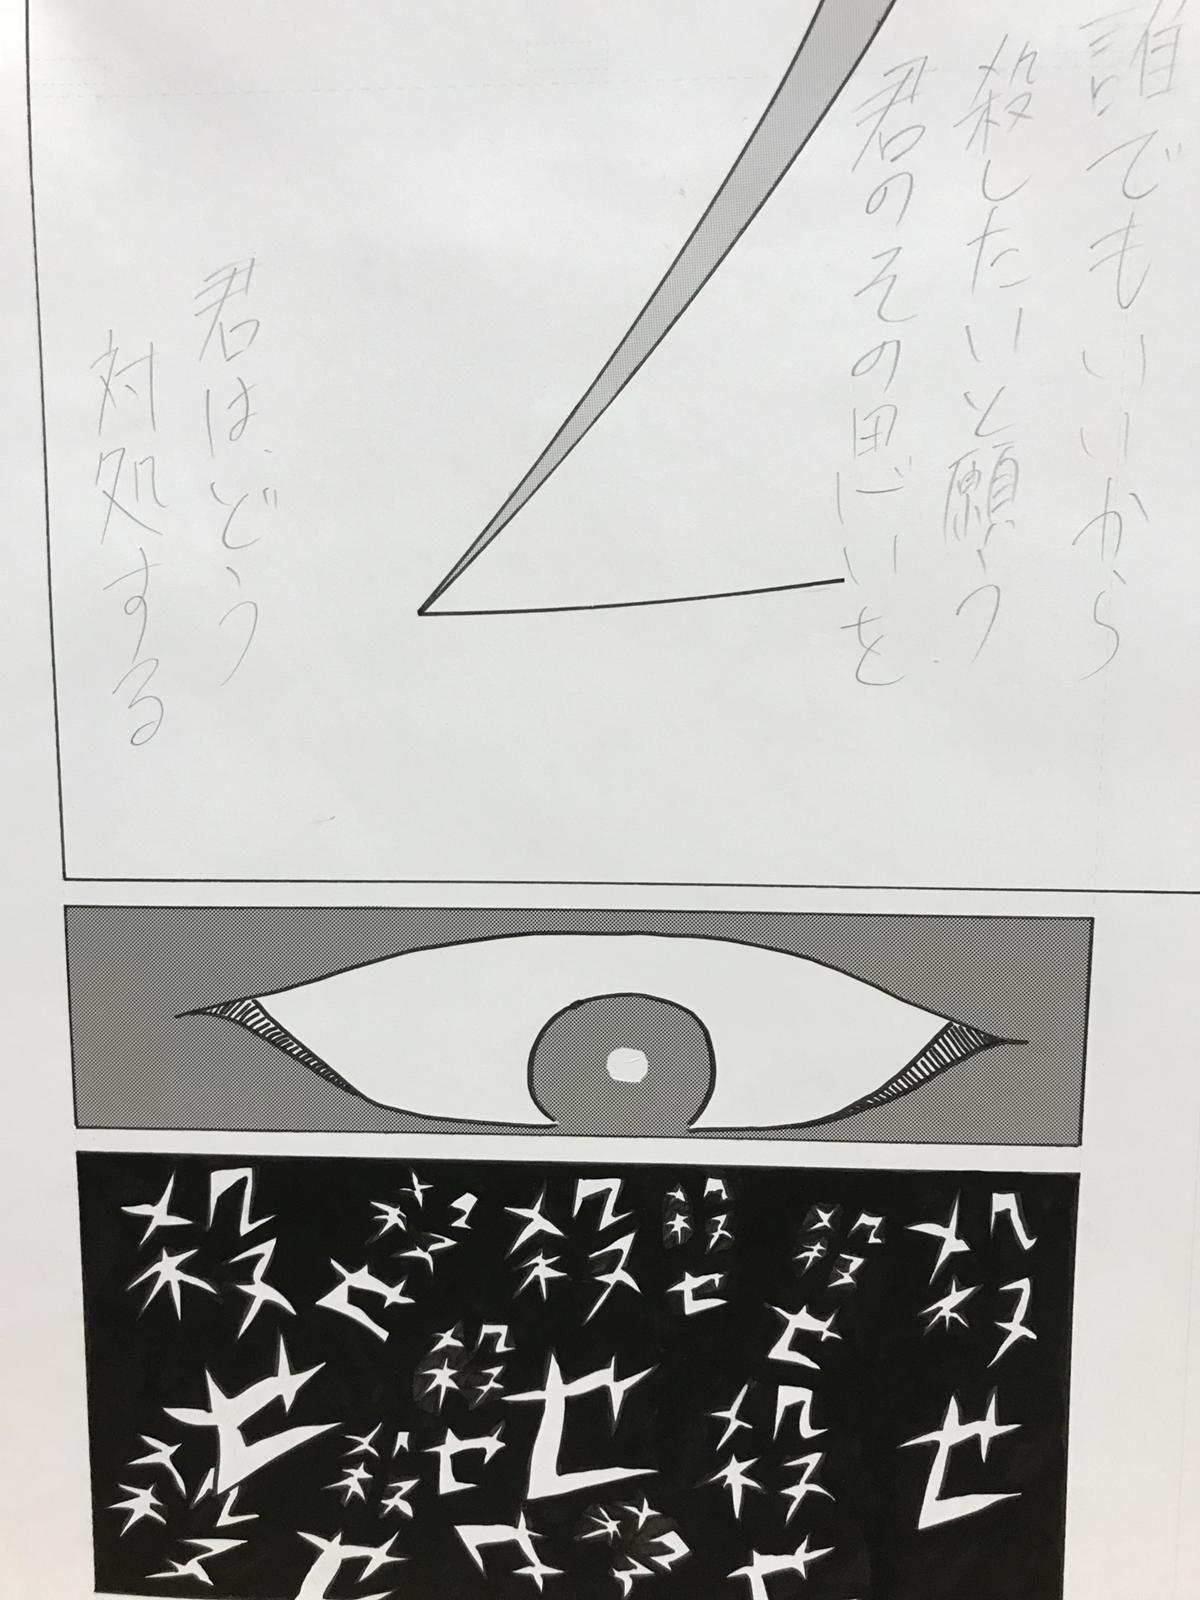 誰でもいいから
殺したいと願う
君のその思いを
君は、どう
対処する
殺せ
殺せ
殺せ
殺せ
殺せ
殺せ
殺せ
殺せ
殺せ
殺せ
殺せ